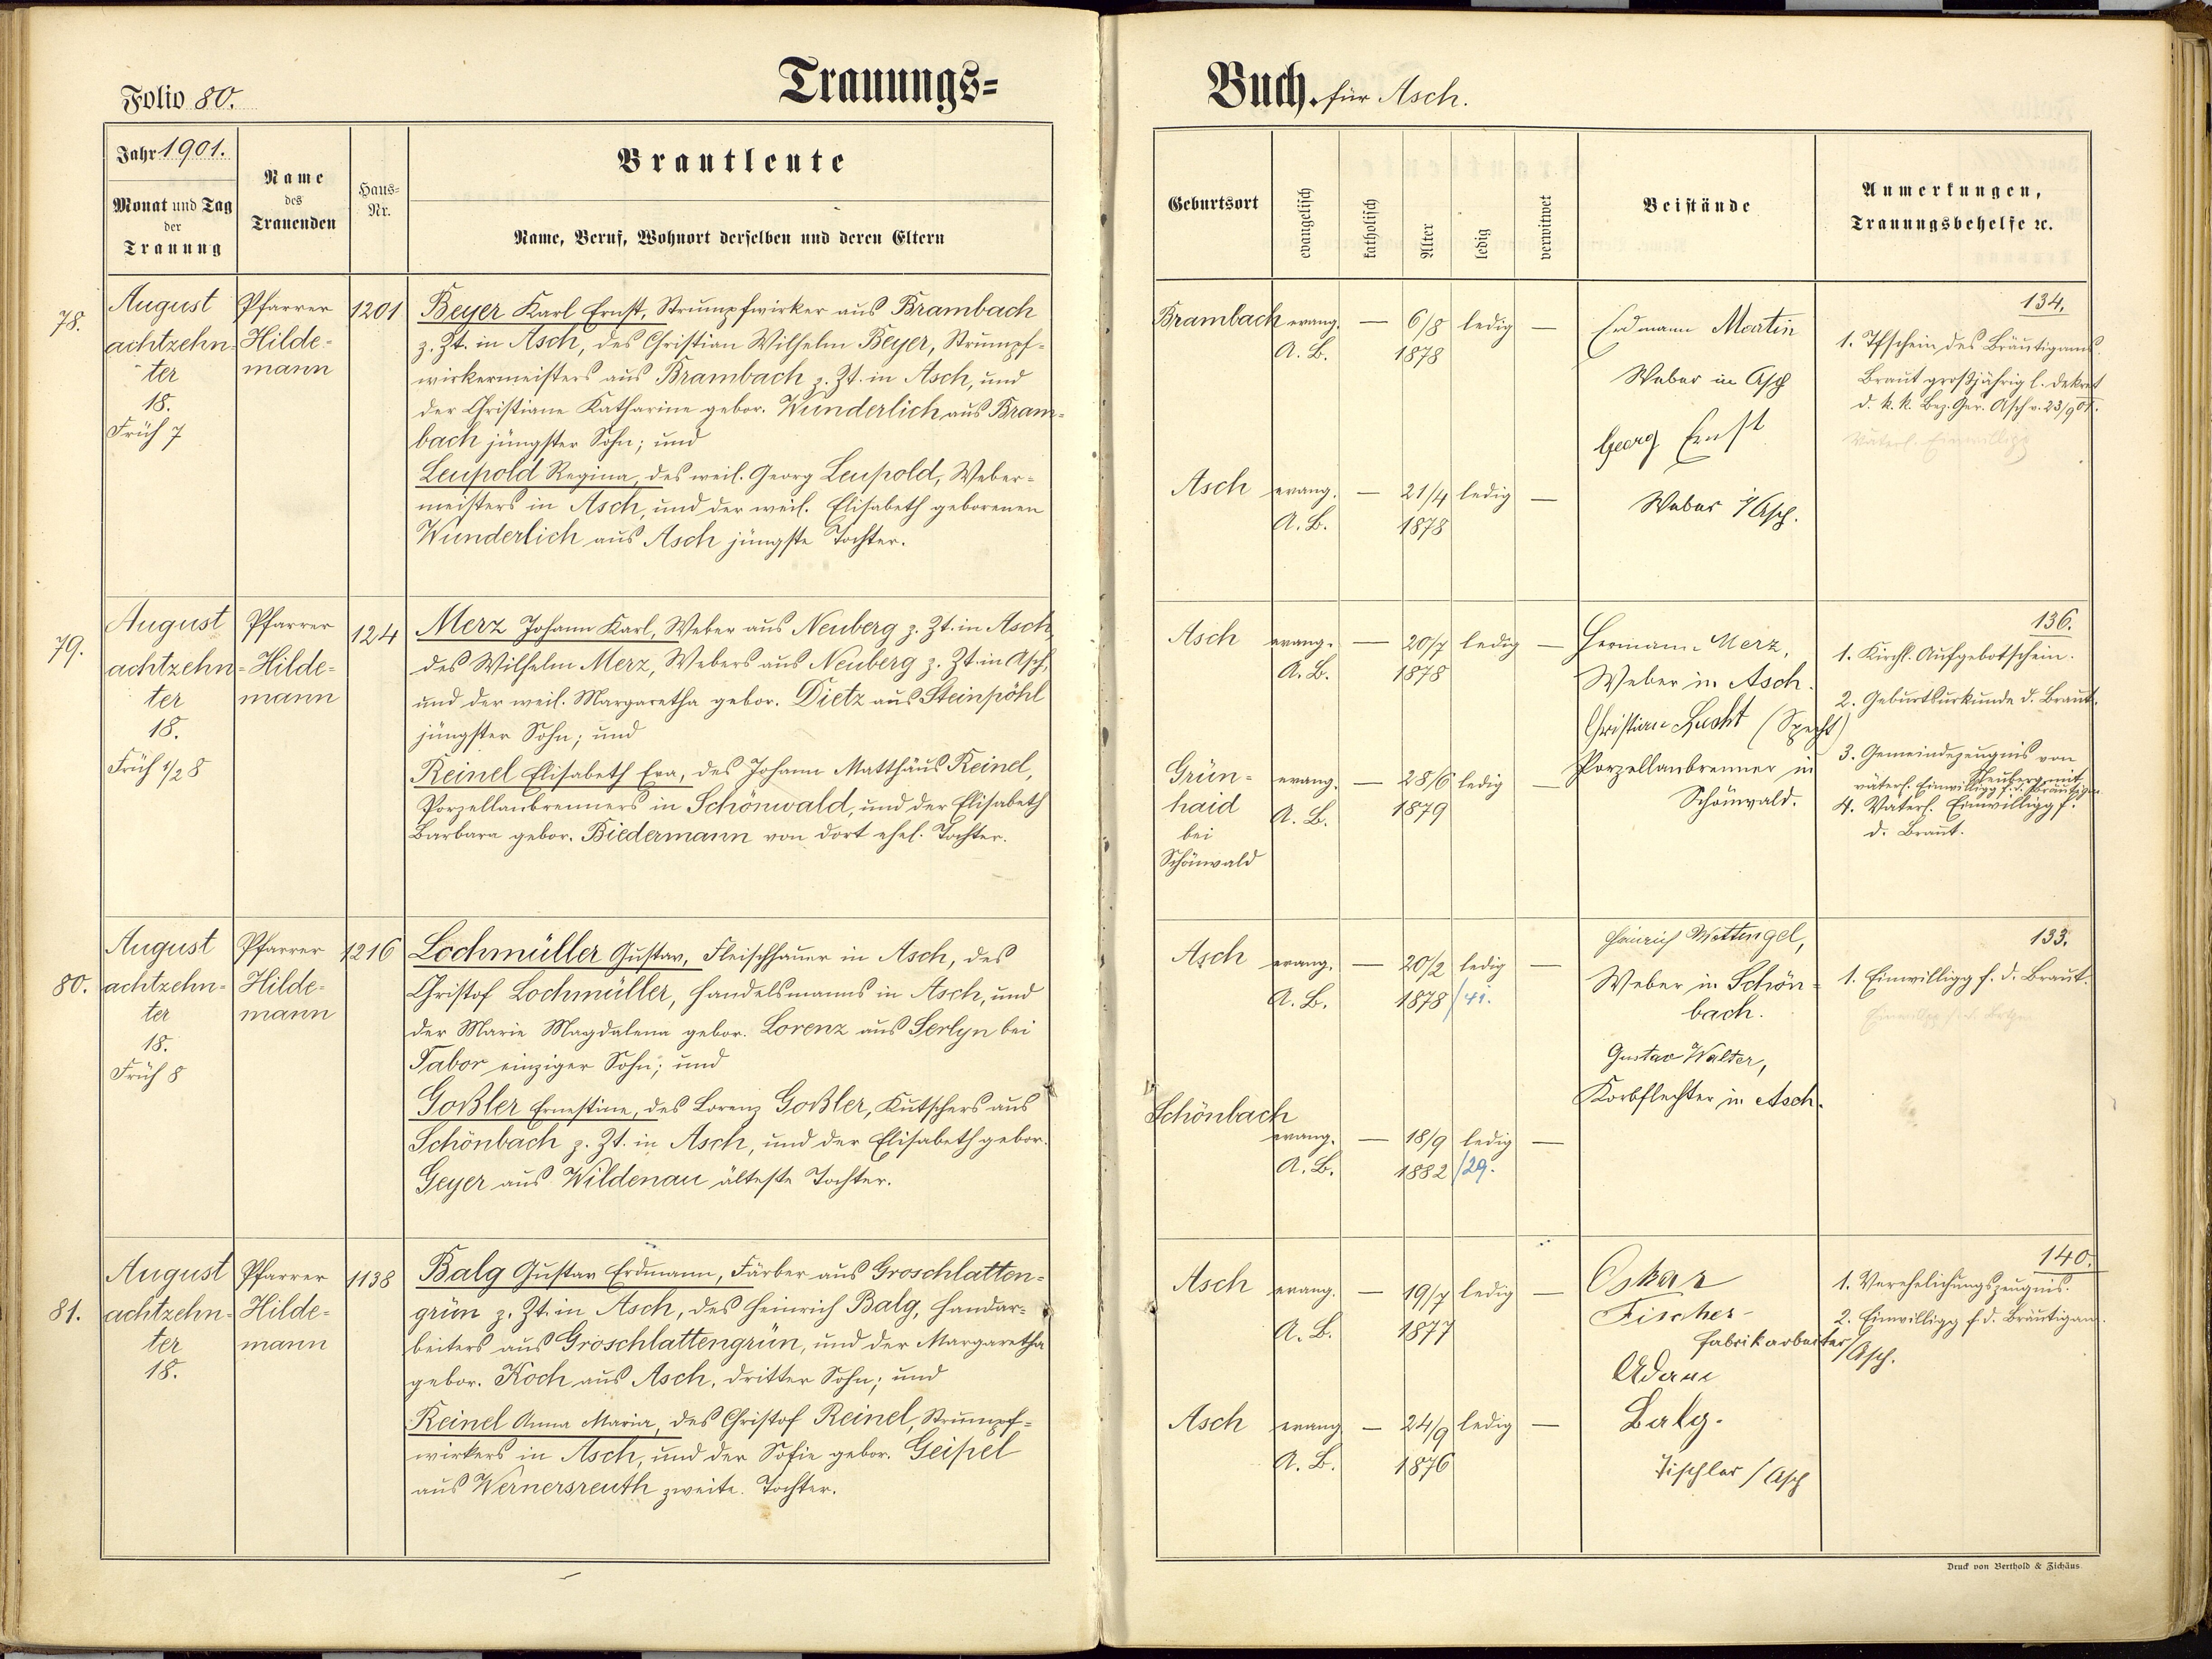 Folio 80.
Trauungs=
Jahr 1901.
Monat und Tag
der
Trauung
Name
des
Trauenden
Haus=
Nr.
Brautleute
Name, Beruf, Wohnort derselben und deren Eltern
78.
August
achtzehn=
ter
18.
Früh 7
Pfarrer
Hilde=
mann
1201
Beyer Karl Ernst, Strumpfwirker aus Brambach
z. Zt. in Asch, des Christian Wilhelm Beyer, Strumpf=
wirkermeisters aus Brambach z. Zt. in Asch, und
der Christiane Katharine gebor. Wunderlich aus Bram=
bach jüngster Sohn; und
Leupold Regina, des weil. Georg Leupold, Weber=
meisters in Asch, und der weil. Elisabeth geborenen
Wunderlich aus Asch jüngste Tochter.
79.
August
achtzehn=
ter
18.
Früh 1/2 8
Pfarrer
Hilde=
mann
124
Merz Johann Karl, Weber aus Neuberg z. Zt. in Asch,
des Wilhelm Merz, Webers aus Neuberg z. Zt. in Asch,
und der weil. Margaretha gebor. Dietz aus Steinpöhl
jüngster Sohn; und
Reinel Elisabeth Eva, des Johann Matthäus Reinel,
Porzellanbrenners in Schönwald, und der Elisabeth
Barbara gebor. Biedermann von dort ehel. Tochter.
80.
August
achtzehn=
ter
18.
Früh 8
Pfarrer
Hilde=
mann
1216
Lochmüller Gustav, Fleischhauer in Asch, des
Christof Lochmüller, Handelsmanns in Asch, und
der Marie Magdalena gebor. Lorenz aus Serlyn bei
Tabor einziger Sohn; und
Goßler Ernestine, des Lorenz Goßler, Kutschers aus
Schönbach z. Zt. in Asch, und der Elisabeth gebor.
Geyer aus Wildenau älteste Tochter.
81.
August
achtzehn=
ter
18.
Pfarrer
Hilde=
mann
1138
Balg Gustav Erdmann, Färber aus Groschlatten=
grün z. Zt. in Asch, des Heinrich Balg, Handar=
beiters aus Groschlattengrün, und der Margaretha
gebor. Koch aus Asch, dritter Sohn; und
Reinel Anna Maria, des Christof Reinel, Strumpf=
wirkers in Asch, und der Sofie gebor. Geipel
aus Wernersreuth zweite Tochter.
Buch. für Asch.
Geburtsort
evangelisch
katholisch
Alter
ledig
verwitwet
Beistände
Anmerkungen,
Trauungsbehelfe ec.
Brambach evang. — 6/8 ledig —
A. B. 1878
Asch evang. — 21/4 ledig —
A. B. 1878
Erdmann Martin
Weber in Asch
Georg Ernst
Weber i/Asch.
134.
1. Tfschein des Bräutigams.
Braut großjährig l. Dekret
d. k. k. Bez. Ger. Asch v. 23/901.
Väterl. Einwilligg
Asch evang. — 20/7 ledig —
A. B. 1878
Grün= evang. — 28/6 ledig —
haid A. B. 1879
bei
Schönwald
Hermann Merz,
Weber in Asch.
Christian (Specht)
Porzellanbrenner in
Schönwald.
136.
1. Kirchl. Aufgebotschein.
2. Geburtsurkunde d. Braut.
3. Gemeindezeugnis von
Neuberg mit
väterl. Einwilligg f. d. Bräutigam
4. Väterl. Einwilligg f.
d. Braut.
Asch evang. — 20/2 ledig —
A. B. 1878 /41.
Schönbach
evang. — 18/9 ledig —
A. B. 1882 /29.
Heinrich Wettengel,
Weber in Schön=
bach.
Gustav Walter,
Korbflechter in Asch.
133.
1. Einwilligg f. d. Braut.
Asch evang. — 19/7 ledig —
A. B. 1877
Asch evang. — 24/9 ledig —
A. B. 1876
Oskar
Fischer
Fabrikarbeiter/Asch.
Adam
Balg.
Tischler / Asch
140.
1. Verehelichungszeugnis.
2. Einwilligg f. d. Bräutigam.
Druck von Berthold & Zichäus